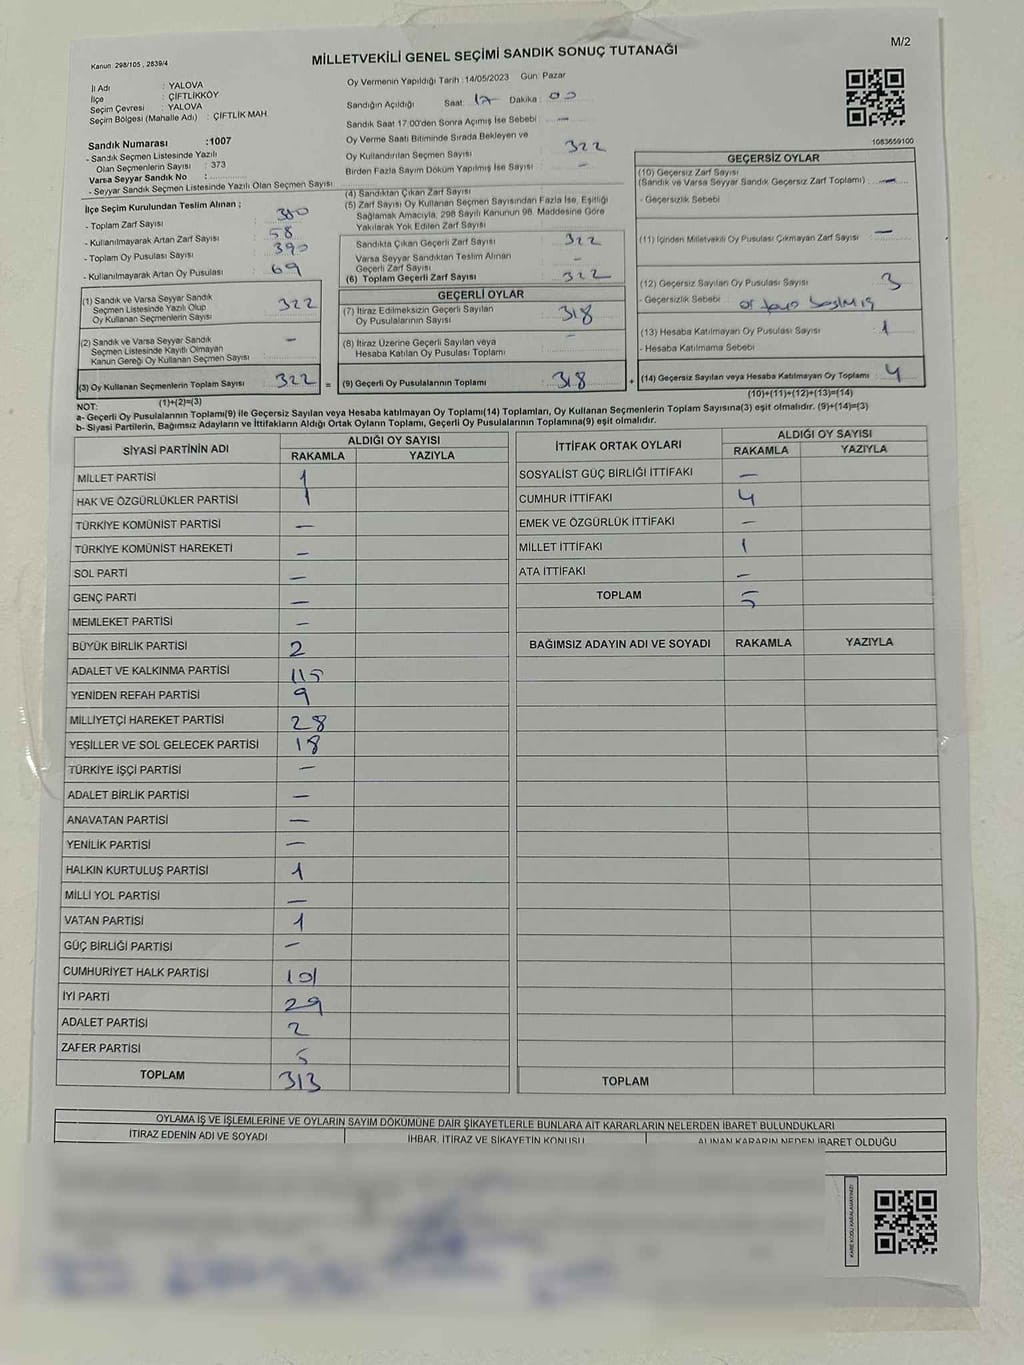 M/2
Kanun 298/105 , 2839/4
MİLLETVEKİLİ GENEL SEÇİMİ SANDIK SONUÇ TUTANAĞI
İl Adı : YALOVA
İlçe : ÇİFTLİKKÖY
Seçim Çevresi : YALOVA
Seçim Bölgesi (Mahalle Adı) : ÇİFTLİK MAH.
Sandık Numarası :1007
- Sandık Seçmen Listesinde Yazılı
Olan Seçmenlerin Sayısı : 373
Varsa Seyyar Sandık No :
- Seyyar Sandık Seçmen Listesinde Yazılı Olan Seçmen Sayısı
İlçe Seçim Kurulundan Teslim Alınan ;
- Toplam Zarf Sayısı : 380
- Kullanılmayarak Artan Zarf Sayısı : 58
- Toplam Oy Pusulası Sayısı : 390
- Kullanılmayarak Artan Oy Pusulası : 69
(1) Sandık ve Varsa Seyyar Sandık
Seçmen Listesinde Yazılı Olup
Oy Kullanan Seçmenlerin Sayısı : 322
(2) Sandık ve Varsa Seyyar Sandık
Seçmen Listesinde Kayıtlı Olmayan
Kanun Gereği Oy Kullanan Seçmen Sayısı : —
(3) Oy Kullanan Seçmenlerin Toplam Sayısı : 322 =
(1)+(2)=(3)
Oy Vermenin Yapıldığı Tarih :14/05/2023 Gün: Pazar
Sandığın Açıldığı Saat: 17 Dakika : 00
Sandık Saat 17:00'den Sonra Açımış İse Sebebi : —
Oy Verme Saati Bitiminde Sırada Bekleyen ve
Oy Kullandırılan Seçmen Sayısı : 322
Birden Fazla Sayım Döküm Yapılmış İse Sayısı : —
(4) Sandıktan Çıkan Zarf Sayısı
(5) Zarf Sayısı Oy Kullanan Seçmen Sayısından Fazla İse, Eşitliği
Sağlamak Amacıyla, 298 Sayılı Kanunun 98. Maddesine Göre
Yakılarak Yok Edilen Zarf Sayısı
Sandıkta Çıkan Geçerli Zarf Sayısı : 322
Varsa Seyyar Sandıktan Teslim Alınan
Geçerli Zarf Sayısı : —
(6) Toplam Geçerli Zarf Sayısı : 322
GEÇERLİ OYLAR
(7) İtiraz Edilmeksizin Geçerli Sayılan
Oy Pusulalarının Sayısı : 318
(8) İtiraz Üzerine Geçerli Sayılan veya
Hesaba Katılan Oy Pusulası Toplamı : —
(9) Geçerli Oy Pusulalarının Toplamı : 318 +
1083659100
GEÇERSİZ OYLAR
(10) Geçersiz Zarf Sayısı
(Sandık ve Varsa Seyyar Sandık Geçersiz Zarf Toplamı) : —
- Geçersizlik Sebebi
(11) İçinden Milletvekili Oy Pusulası Çıkmayan Zarf Sayısı : —
(12) Geçersiz Sayılan Oy Pusulası Sayısı : 3
- Geçersizlik Sebebi :
(13) Hesaba Katılmayan Oy Pusulası Sayısı : 1
- Hesaba Katılmama Sebebi
(14) Geçersiz Sayılan veya Hesaba Katılmayan Oy Toplamı : 4
(10)+(11)+(12)+(13)=(14)
NOT:
a- Geçerli Oy Pusulalarının Toplamı(9) ile Geçersiz Sayılan veya Hesaba katılmayan Oy Toplamı(14) Toplamları, Oy Kullanan Seçmenlerin Toplam Sayısına(3) eşit olmalıdır. (9)+(14)=(3)
b- Siyasi Partilerin, Bağımsız Adayların ve İttifakların Aldığı Ortak Oyların Toplamı, Geçerli Oy Pusulalarının Toplamına(9) eşit olmalıdır.
SİYASİ PARTİNİN ADI ALDIĞI OY SAYISI
RAKAMLA YAZIYLA
MİLLET PARTİSİ 1
HAK VE ÖZGÜRLÜKLER PARTİSİ 1
TÜRKİYE KOMÜNİST PARTİSİ —
TÜRKİYE KOMÜNİST HAREKETİ —
SOL PARTİ —
GENÇ PARTİ —
MEMLEKET PARTİSİ —
BÜYÜK BİRLİK PARTİSİ 2
ADALET VE KALKINMA PARTİSİ 115
YENİDEN REFAH PARTİSİ 9
MİLLİYETÇİ HAREKET PARTİSİ 28
YEŞİLLER VE SOL GELECEK PARTİSİ 18
TÜRKİYE İŞÇİ PARTİSİ —
ADALET BİRLİK PARTİSİ —
ANAVATAN PARTİSİ —
YENİLİK PARTİSİ —
HALKIN KURTULUŞ PARTİSİ 1
MİLLİ YOL PARTİSİ —
VATAN PARTİSİ 1
GÜÇ BİRLİĞİ PARTİSİ —
CUMHURİYET HALK PARTİSİ 101
İYİ PARTİ 29
ADALET PARTİSİ 2
ZAFER PARTİSİ 5
TOPLAM 313
İTTİFAK ORTAK OYLARI ALDIĞI OY SAYISI
RAKAMLA YAZIYLA
SOSYALİST GÜÇ BİRLİĞİ İTTİFAKI —
CUMHUR İTTİFAKI 4
EMEK VE ÖZGÜRLÜK İTTİFAKI —
MİLLET İTTİFAKI 1
ATA İTTİFAKI —
TOPLAM 5
BAĞIMSIZ ADAYIN ADI VE SOYADI RAKAMLA YAZIYLA
TOPLAM
OYLAMA İŞ VE İŞLEMLERİNE VE OYLARIN SAYIM DÖKÜMÜNE DAİR ŞİKAYETLERLE BUNLARA AİT KARARLARIN NELERDEN İBARET BULUNDUKLARI
İTİRAZ EDENİN ADI VE SOYADI İHBAR, İTİRAZ VE ŞİKAYETİN KONUSU ALINAN KARARIN NEDEN İBARET OLDUĞU
KARE KODU KARALAMAYINIZ!